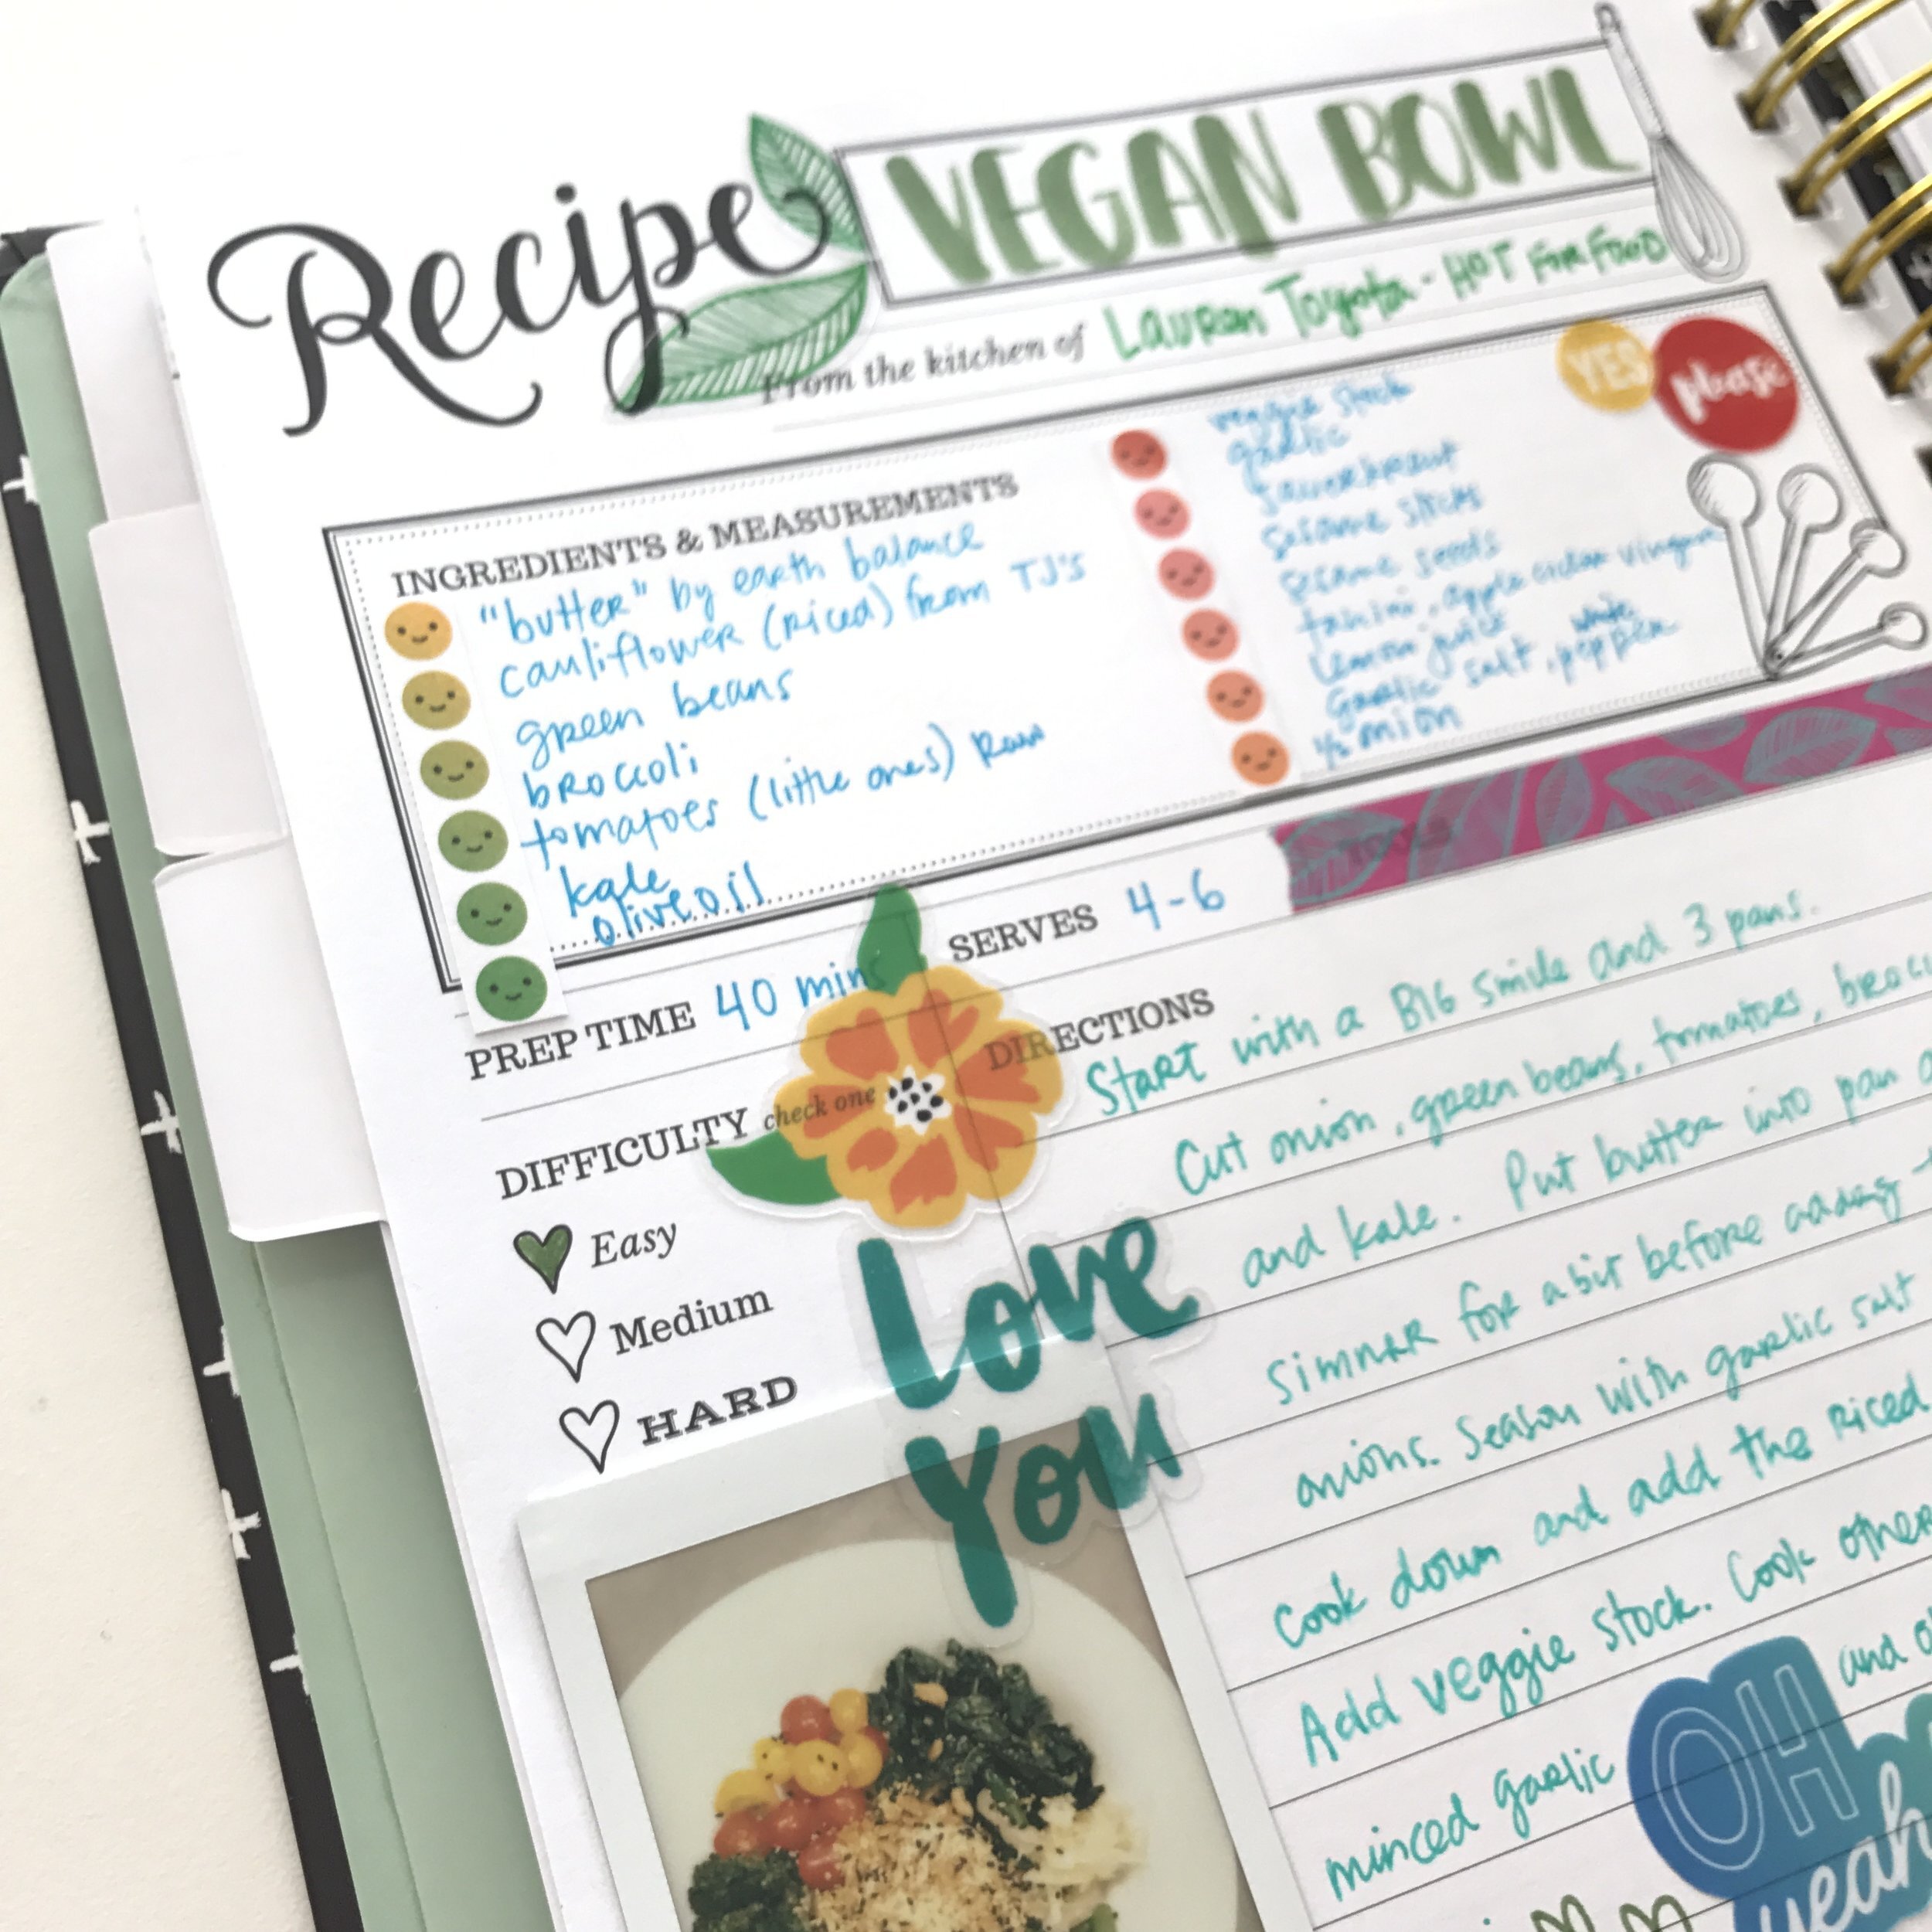 Recipe VEGAN BOWL
From the kitchen of Lauren Toyota - HOT FOR FOOD
YES please
INGREDIENTS & MEASUREMENTS
"butter" by earth balance
cauliflower (riced) from TJ's
green beans
broccoli
tomatoes (little ones) Raw
kale
olive oil
veggie stock
garlic
sauerkraut
sesame sticks
sesame seeds
tahini, apple cider vinegar
lemon juice
garlic salt, white pepper
1/2 onion
PREP TIME 40 min
SERVES 4-6
DIFFICULTY check one
Easy
Medium
HARD
Love
You
DIRECTIONS
Start with a BIG smile and 3 pans.
Cut onion, green beans, tomatoes,
and kale. Put butter into pan
simmer for a bit before adding
onions. Season with garlic salt
cook down and add the riced
Add veggie stock. Cook other
minced garlic and
OH
yeah